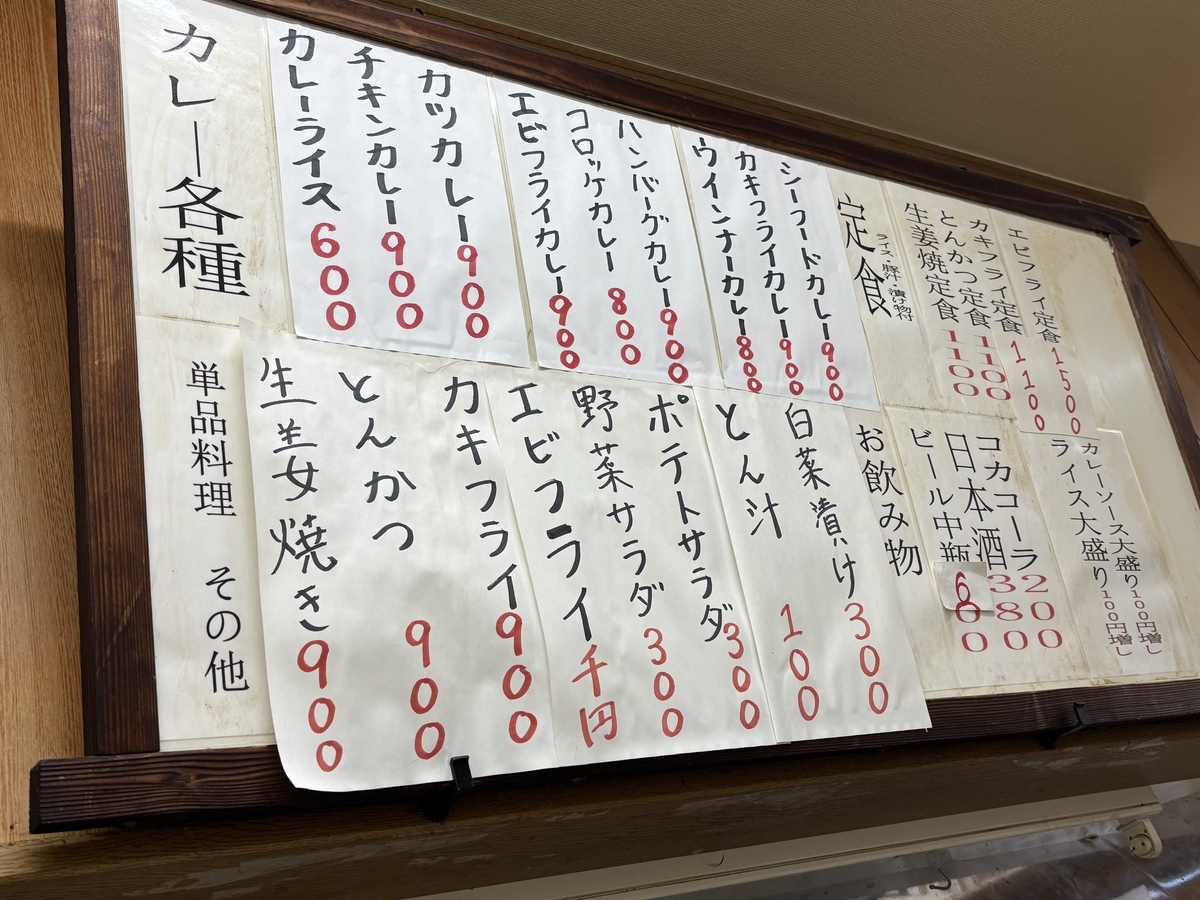 カレー各種
カレーライス 600
チキンカレー 900
カツカレー 900
エビフライカレー 900
コロッケカレー 800
ハンバーグカレー 900
ウインナーカレー 800
カキフライカレー 900
シーフードカレー 900
定食
ライス・豚汁・漬け物付
生姜焼定食 1100
とんかつ定食 1100
カキフライ定食 1100
エビフライ定食 1500
単品料理 その他
生姜焼き 900
とんかつ 900
カキフライ 900
エビフライ 千円
野菜サラダ 300
ポテトサラダ 300
とん汁 100
白菜漬け 300
お飲み物
ビール中瓶 600
日本酒 380
コカコーラ 200
ライス大盛り 100円増し
カレーソース大盛り 100円増し